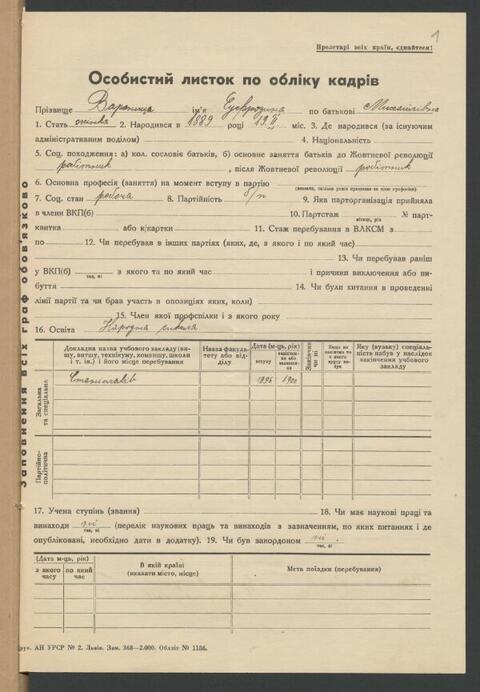 1
Пролетарі всіх країн, єднайтеся!
Особистий листок по обліку кадрів
Прізвище ім'я по батькові Михайлівна
1. Стать жінка 2. Народився в 1889 році 19.II. міс. 3. Де народився (за існуючим
адміністративним поділом) 4. Національність
5. Соц. походження: а) кол. сословіє батьків, б) основне заняття батьків до Жовтневої революції
робітник, після Жовтневої революції робітник
6. Основна професія (заняття) на момент вступу в партію
7. Соц. стан робоча 8. Партійність б/п 9. Яка парторганізація прийняла
в члени ВКП(б) 10. Партстаж місяць, рік № парт-
квитка або к/картки 11. Стаж перебування в ВЛКСМ з
по 12. Чи перебував в інших партіях (яких, де, з якого і по який час)
13. Чи перебував раніш
у ВКП(б) так, ні з якого та по який час і причини виключення або ви-
буття 14. Чи були хитання в проведенні
лінії партії та чи брав участь в опозиціях яких, коли)
15. Член якої профспілки і з якого року
16. Освіта Народна школа
Заповнення всіх граф обов'язково
Докладна назва учбового закладу (ви-
шу, втишу, технікуму, комвишу, школи
і т. ін.) і його місце перебування
Назва факуль-
тету або від-
ділу
Дата (м-ць, рік)
вступу
Яку (вузьку) спеціаль-
ність набув у наслідок
закінчення учбового
закладу
Загальна
та спеціальна
Станиславів 1896 1900
Партійно-
політична
17. Учена ступінь (звання) 18. Чи має наукові праці та
винаходи ні (перелік наукових праць та винаходів з зазначенням, по яких питаннях і де
так, ні
опубліковані, необхідно дати в додатку). 19. Чи був закордоном ні.
так, ні
(Дата м-ць, рік)
з якого
часу
по який
час
В якій країні
(вказати місто, місце)
Мета поїздки (перебування)
друк. АН УРСР № 2. Львів. Зам. 368—2.000. Обліт № 1186.